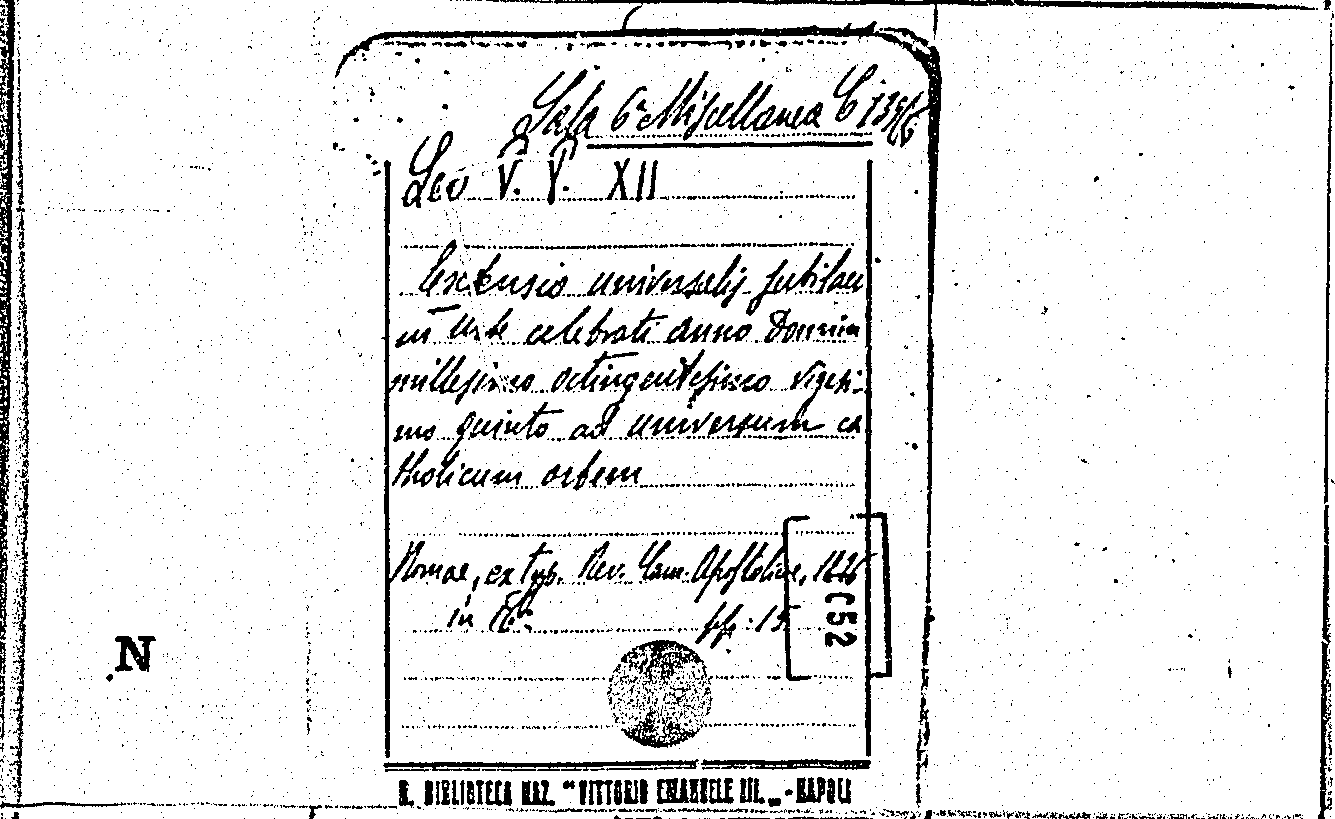 Sala 6ª Miscellanea C 13
Leo P. P. XII
Extensio universalis jubilaei
in Urbe celebrati anno Domini
millesimo octingentesimo vigesi-
mo quinto ad universum ca
tholicum orbem
Romae, ex typ. Rev. Cam. Apostolicae,
in 8º. pp. 15
C52
N
R. BIBLIOTECA NAZ. "VITTORIO EMANUELE III. „ - NAPOLI